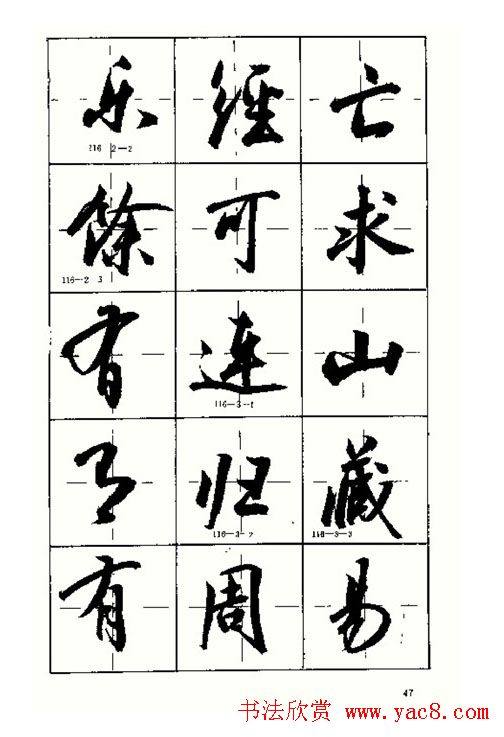 乐經亡
116—2—2
餘可求
116—2—3
有連山
116—3—1
有归藏
116—3—2 116—3—3
有周易
47
书法欣赏 www.yac8.com